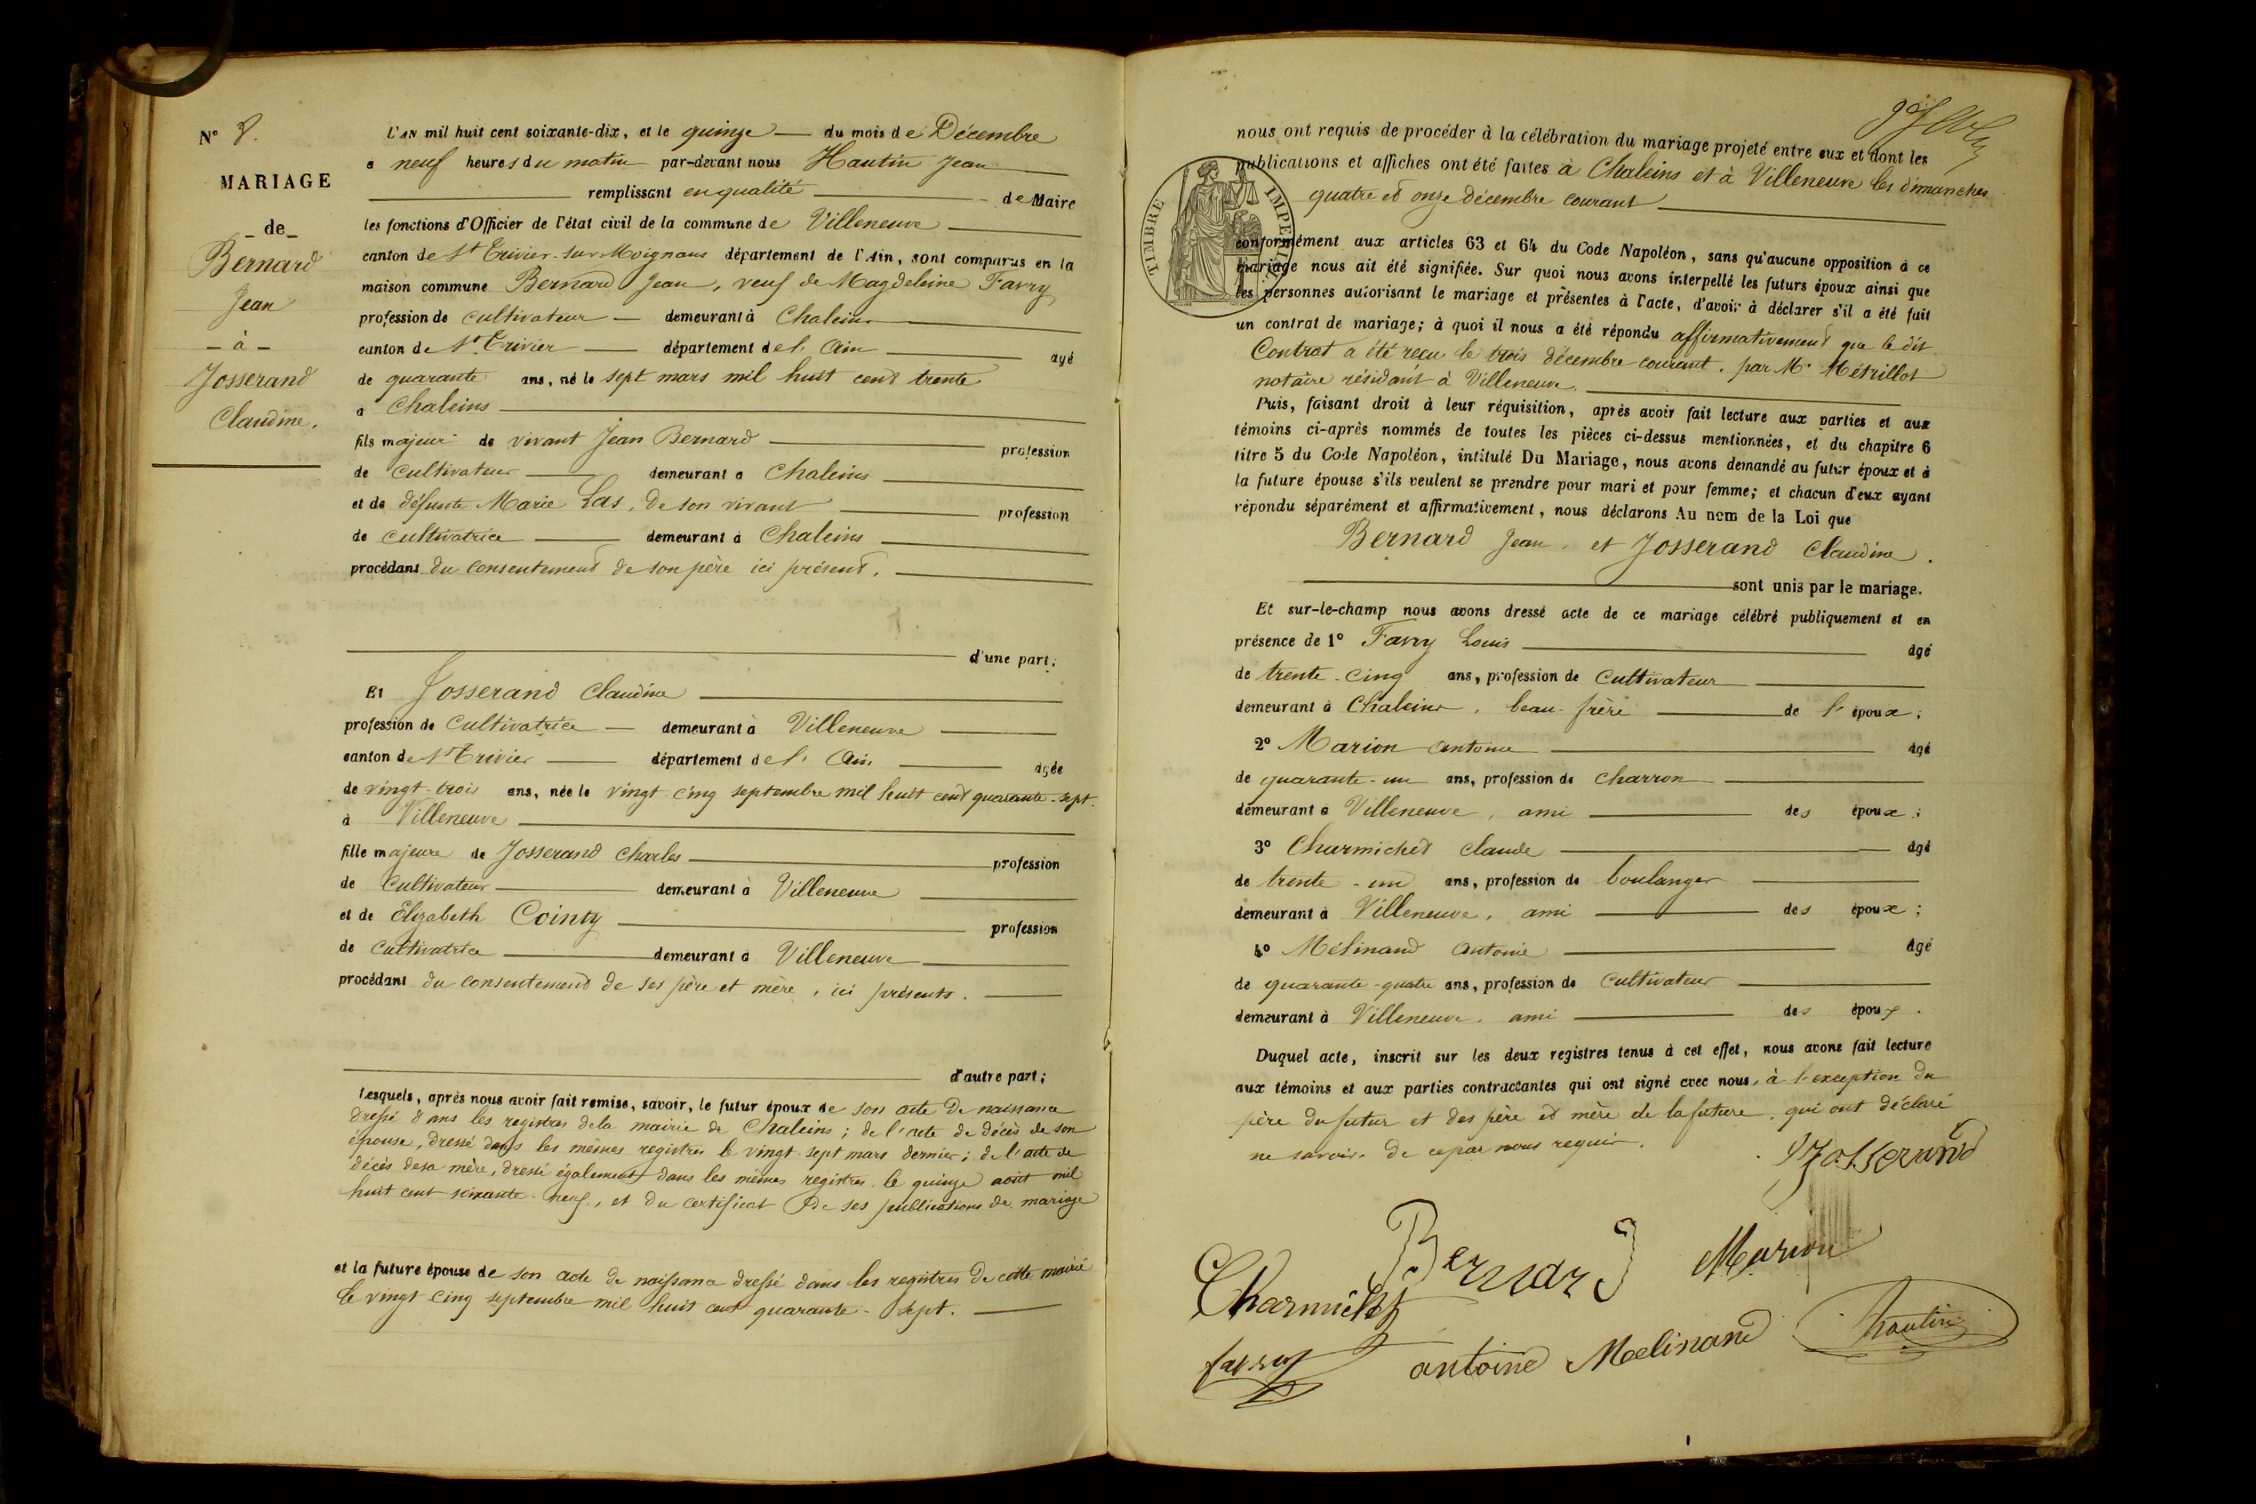 N° 8.
MARIAGE
_ de _
Bernard
Jean
_ à _
Josserand
Claudine.
L'AN mil huit cent soixante-dix, et le quinze du mois de Décembre
à neuf heures du matin par-devant nous Hautin Jean
remplissant en qualité de Maire
les fonctions d'Officier de l'état civil de la commune de Villeneuve
canton de St Trivier-sur-Moignans département de l'Ain, sont comparus en la
maison commune Bernard Jean, veuf de Magdeleine Favry
profession de cultivateur demeurant à Chaleins
canton de St Trivier département de l'Ain âgé
de quarante ans, né le sept mars mil huit cent trente
à Chaleins
fils majeur de vivant Jean Bernard profession
de cultivateur demeurant à Chaleins
et de défunte Marie Las, de son vivant profession
de cultivatrice demeurant à Chaleins
procédant du consentement de son père ici présent.
d'une part;
Et Josserand Claudine
profession de cultivatrice demeurant à Villeneuve
canton de St Trivier département de l'Ain âgée
de vingt-trois ans, née le vingt-cinq septembre mil huit cent quarante-sept.
à Villeneuve
fille majeure de Josserand Charles profession
de cultivateur demeurant à Villeneuve
et de Elizabeth Cointy profession
de cultivatrice demeurant à Villeneuve
procédant du consentement de ses père et mère, ici présents.
d'autre part;
Lesquels, après nous avoir fait remise, savoir, le futur époux de son acte de naissance
dressé dans les registres de la mairie de Chaleins; de l'acte de décès de son
épouse, dressé dans les mêmes registres le vingt-sept mars dernier; de l'acte de
décès de sa mère, dressé également dans les mêmes registres le quinze août mil
huit cent soixante-neuf, et du certificat de ses publications de mariage
et la future épouse de son acte de naissance dressé dans les registres de cette mairie
le vingt cinq septembre mil huit cent quarante-sept.
nous ont requis de procéder à la célébration du mariage projeté entre eux et dont les
publications et affiches ont été faites à Chaleins et à Villeneuve les dimanches
quatre et onze décembre courant
TIMBRE IMPERIAL
conformément aux articles 63 et 64 du Code Napoléon, sans qu'aucune opposition à ce
mariage nous ait été signifiée. Sur quoi nous avons interpellé les futurs époux ainsi que
les personnes autorisant le mariage et présentes à l'acte, d'avoir à déclarer s'il a été fait
un contrat de mariage; à quoi il nous a été répondu affirmativement que le dit
Contrat a été reçu le trois décembre courant. par Me Métrillot
notaire résidant à Villeneuve.
Puis, faisant droit à leur réquisition, après avoir fait lecture aux parties et aux
témoins ci-après nommés de toutes les pièces ci-dessus mentionnées, et du chapitre 6
titre 5 du Code Napoléon, intitulé Du Mariage, nous avons demandé au futur époux et à
la future épouse s'ils veulent se prendre pour mari et pour femme; et chacun d'eux ayant
répondu séparément et affirmativement, nous déclarons Au nom de la Loi que
Bernard Jean, et Josserand Claudine.
sont unis par le mariage.
Et sur-le-champ nous avons dressé acte de ce mariage célébré publiquement et en
présence de 1° Favry Louis âgé
de trente-cinq ans, profession de cultivateur
demeurant à Chaleins, beau-frère de l'époux;
2° Marion Antoine âgé
de quarante-un ans, profession de charron
demeurant à Villeneuve, ami des époux;
3° Charmichet Claude âgé
de trente-un ans, profession de boulanger
demeurant à Villeneuve, ami des époux;
4° Mélinand Antoine âgé
de quarante-quatre ans, profession de cultivateur
demeurant à Villeneuve. ami des époux.
Duquel acte, inscrit sur les deux registres tenus à cet effet, nous avons fait lecture
aux témoins et aux parties contractantes qui ont signé avec nous, à l'exception du
père du futur et des père et mère de la future, qui ont déclaré
ne savoir. de ce par nous requis.
Josserand
Bernard
Marion
Charmichet
favry
antoine Melinand
Hautin